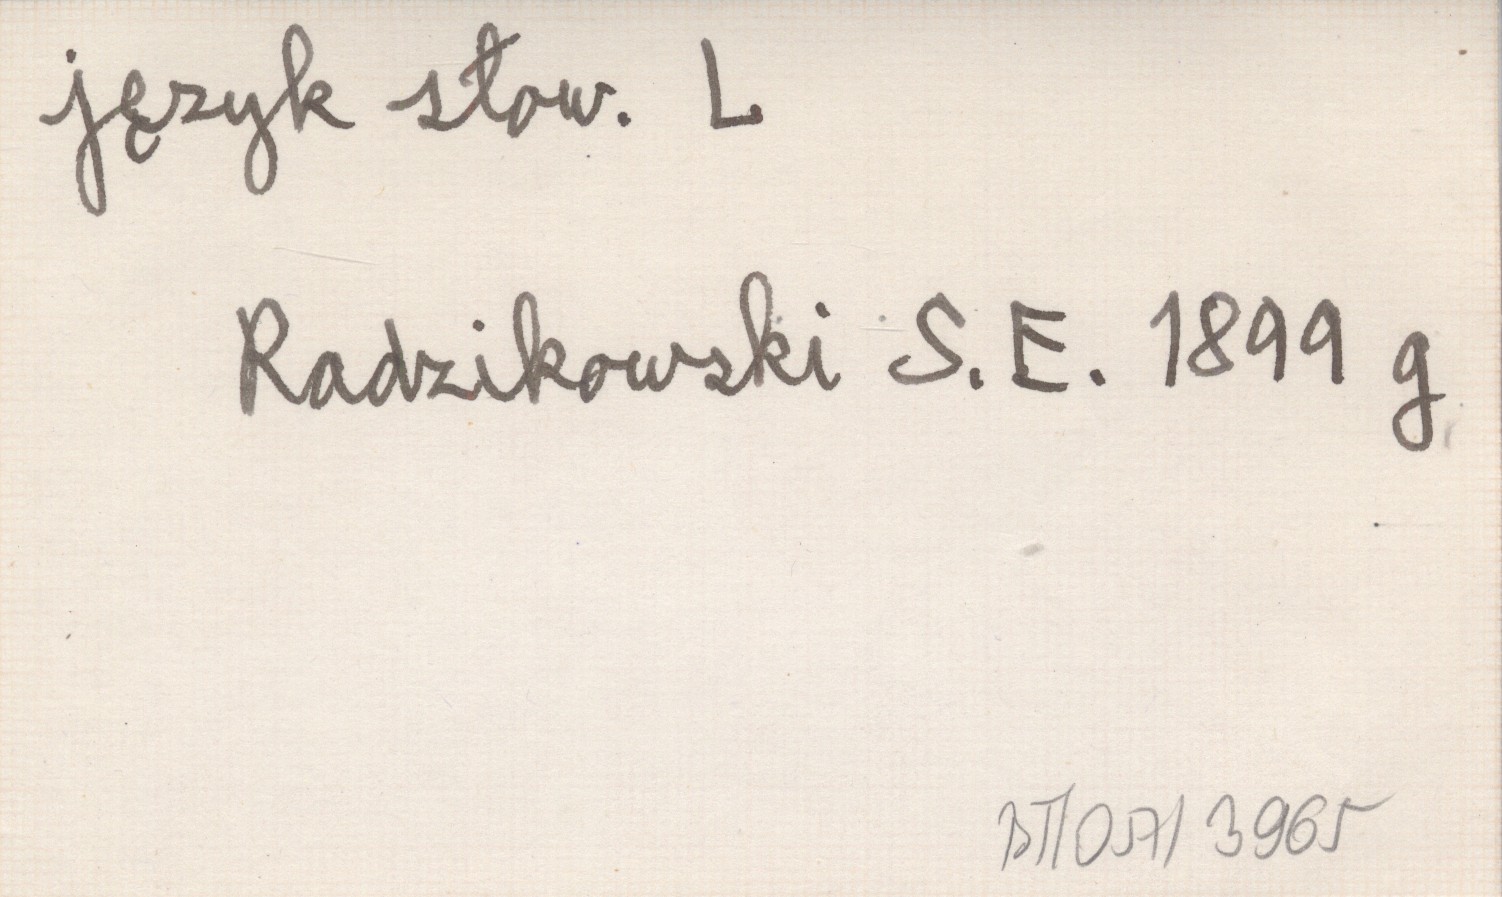 język słow. L
Radzikowski S. E. 1899 g
BT/057/3965